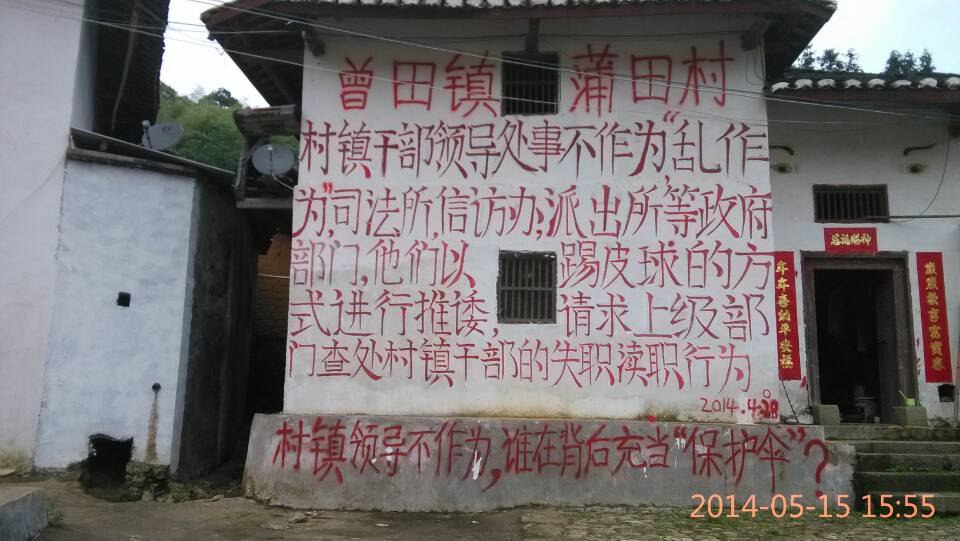 曾田镇 蒲田村
村镇干部领导处事不作为"乱作
为"司法所,信访办;派出所等政府
部门,他们以 踢皮球的方
式进行推诿, 请求上级部
门查处村镇干部的失职渎职行为。
2014.4.28
村镇领导不作为,谁在背后充当"保护伞"?
年年喜纳平安福
岁岁欢享富贵春
2014-05-15 15:55